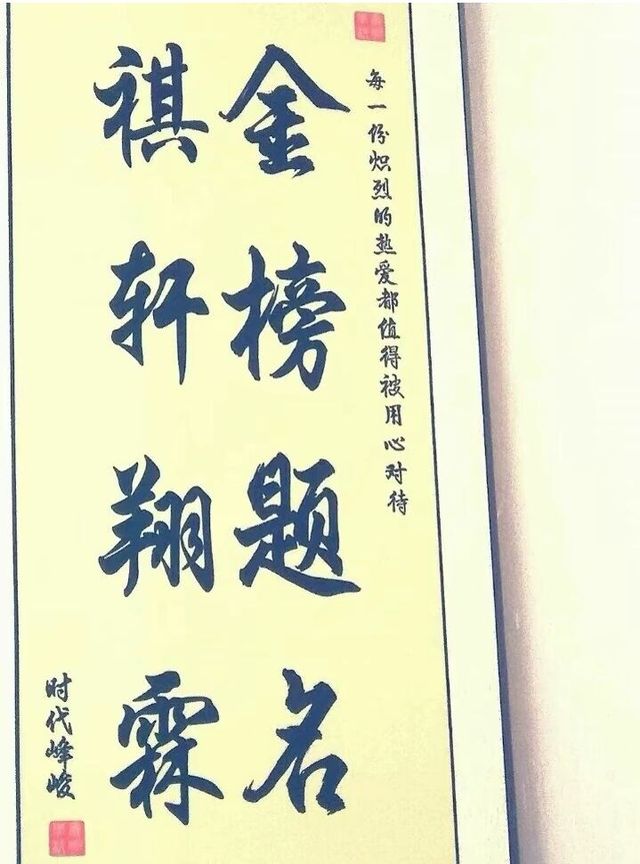 每一份炽烈的热爱都值得被用心对待
金榜题名
祺轩翔霖
时代峰峻